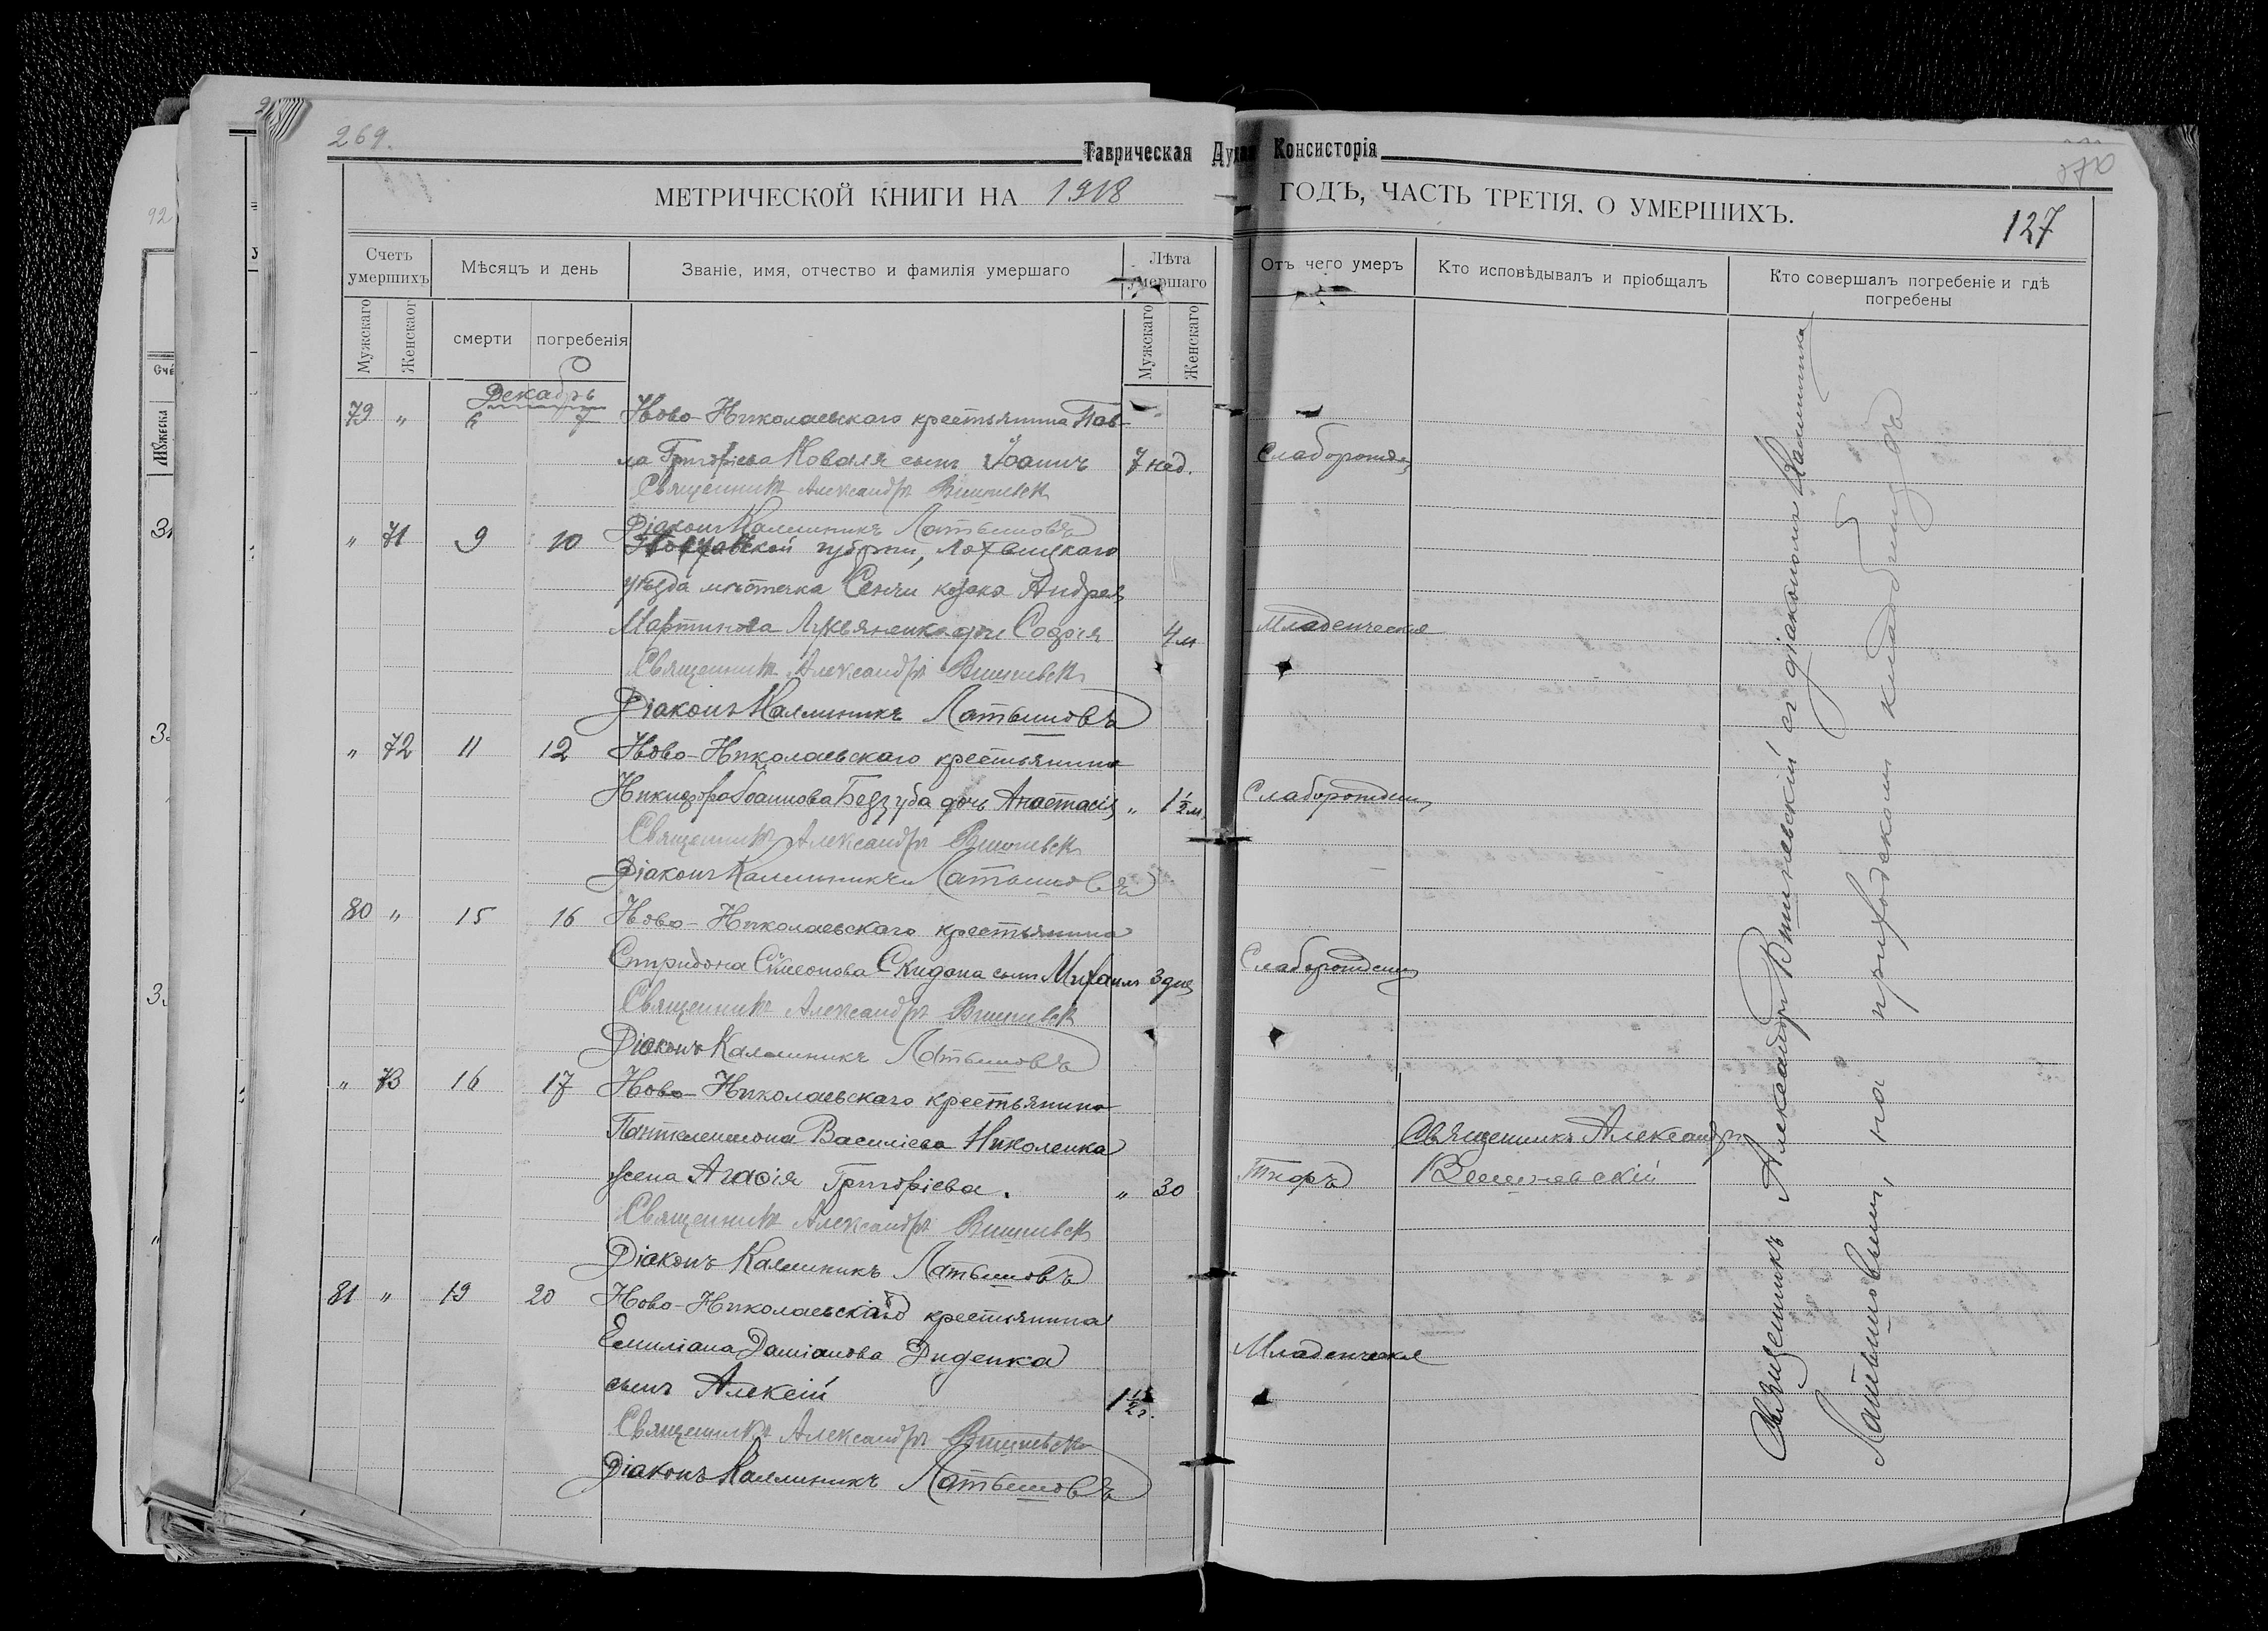 269.
270
Таврическая Духов Консисторія
МЕТРИЧЕСКОЙ КНИГИ НА 1918 ГОДЪ, ЧАСТЬ ТРЕТІЯ, О УМЕРШИХЪ.
127
Счетъ умершихъ
Мѣсяцъ и день
Званіе, имя, отчество и фамилія умершаго
Лѣта умершаго
Отъ чего умеръ
Кто исповѣдывалъ и пріобщалъ
Кто совершалъ погребеніе и гдѣ погребены
Мужскаго
Женскаог
смерти
погребенія
Мужскаго
Женскаго
Декабрь
79 " 6 7 Ново-Николаевскаго крестьянина Пав-
ла Григоріева Коваля сынъ Іоаннъ 7 нед. Слаборожд.
Священникъ Александръ Вишневск
Діаконъ Каллиникъ Латышовъ
" 71 9 10 Полтавской губерніи, Лохвицкаго
уѣзда мѣстечка Сенчи козака Андрея
Мартинова Лукьяненка дочь Софія 4 м Младенческая
Священникъ Александръ Вишневск
Діаконъ Каллиникъ Латышовъ
" 72 11 12 Ново-Николаевскаго крестьянина
Никифора Іоаннова Беззуба дочь Анастасія " 1 1/2 м. Слаборожден
Священникъ Александръ Вишневск
Діаконъ Каллиникъ Латышовъ
80 " 15 16 Ново-Николаевскаго крестьянина
Спиридона Симеонова Скидана сынъ Михаилъ 3 дня Слаборожден
Священникъ Александръ Вишневск
Діаконъ Каллиникъ Латышовъ
" 73 16 17 Ново-Николаевскаго крестьянина
Пантелеимона Василіева Николенка Священникъ Александръ
жена Агафія Григоріева. " 30 Тифъ Вишневскій
Священникъ Александръ Вишневск
Діаконъ Каллиникъ Латышовъ
81 " 19 20 Ново-Николаевскаго крестьянина
Емиліана Даміанова Диденка Младенческая
сынъ Алексій 1 1/2 г.
Священникъ Александръ Вишневск
Діаконъ Каллиникъ Латышовъ
Священникъ Александръ Вишневскій съ діакономъ Каллиникомъ
Латышовымъ, на приходскомъ кладбищѣ